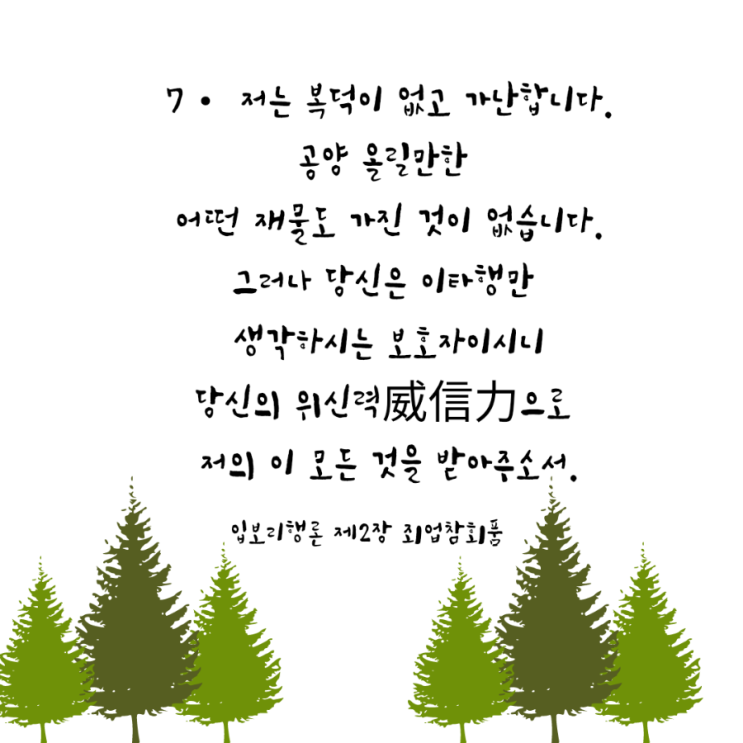 7 • 저는 복덕이 없고 가난합니다.
공양 올릴만한
어떤 재물도 가진 것이 없습니다.
그러나 당신은 이타행만
생각하시는 보호자이시니
당신의 위신력威信力으로
저의 이 모든 것을 받아주소서.
입보리행론 제2장 죄업참회품